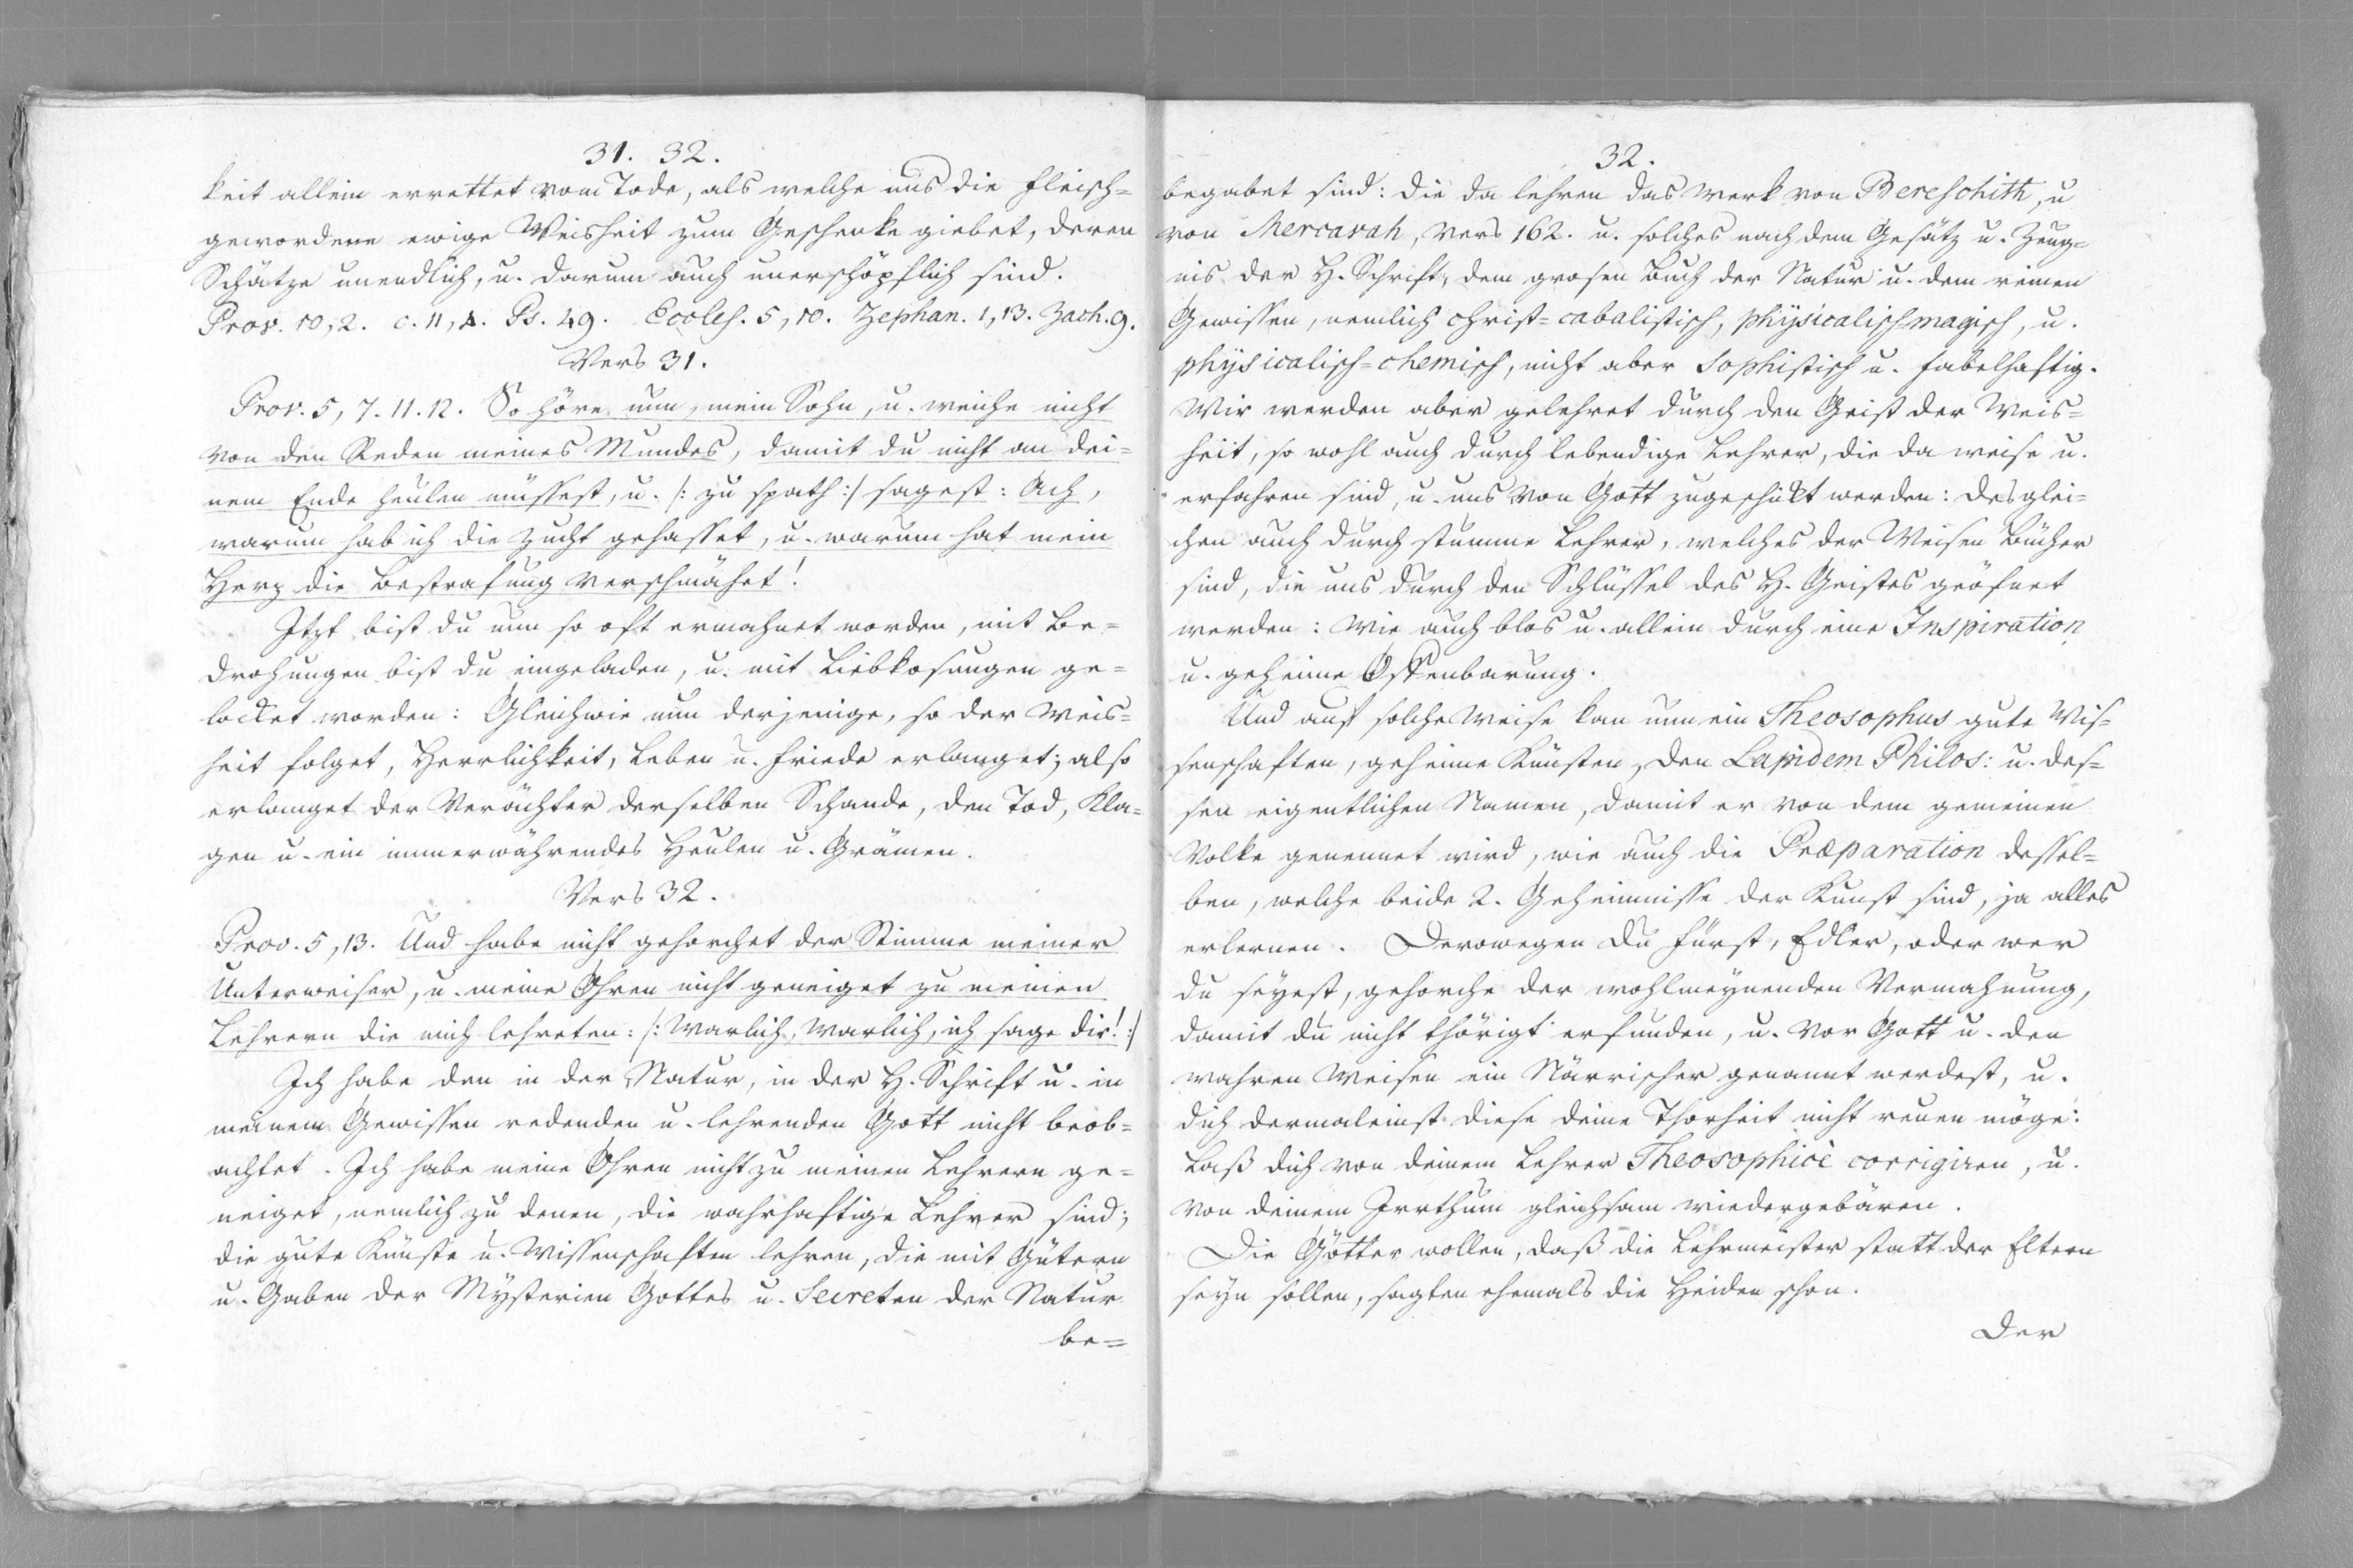 31. 32.
keit allein errettet vom Tode, als welche uns die fleisch=
gewordene ewige Weisheit zum Geschenke giebet, deren
Schätze unendlich, u. darum auch unerschöpflich sind.
Prov. 10,2. c. 11,4. Ps. 49. Eccles. 5,10. Zephan. 1,13. Zach. 9.
Vers 31.
Prov. 5, 7. 11. 12. So höre nun, mein Sohn, u. weiche nicht
von den Reden meines Mundes, damit du nicht an dei=
nem Ende heulen müssest, u. /: zu spath :/ sagest: Ach,
warum hab ich die Zucht gehasset, u. warum hat mein
Herz die Bestrafung verschmähet!
Itzt bist du nun so oft ermahnet worden, mit Be=
drohungen bist du eingeladen, u. mit Liebkosungen ge=
locket worden: Gleichwie nun derjenige, so der Weis=
heit folget, Herrlichkeit, Leben u. Friede erlanget; also
erlanget der Verächter derselben Schande, den Tod, Kla=
gen u. ein immerwährendes Heulen u. Grämen.
Vers 32.
Prov. 5, 13. Und habe nicht gehorchet der Stimme meiner
Unterweiser, u. meine Ohren nicht geneiget zu meinen
Lehrern die mich lehreten: /: Warlich, warlich, ich sage dir! :/
Ich habe den in der Natur, in der H. Schrift u. in
meinem Gewissen redenden u. lehrenden Gott nicht beob=
achtet. Ich habe meine Ohren nicht zu meinen Lehrern ge=
neiget, nemlich zu denen, die wahrhaftige Lehrer sind;
die gute Künste u. Wissenschaften lehren, die mit Gütern
u. Gaben der Mysterien Gottes u. Secreten der Natur
be=
32.
begabet sind: die da lehren das Werk von Bereschith, u
von Mercavah, Vers 162. u. solches nach dem Gesätz u. Zeug=
nis der H. Schrift, dem grosen Buch der Natur u. dem reinen
Gewissen, nemlich christ=cabalistisch, physicalisch-magisch, u.
physicalisch=chemisch, nicht aber Sophistisch u. fabelhaftig.
Wir werden aber gelehret durch den Geist der Weis=
heit, so wohl auch durch lebendige Lehrer, die da weise u.
erfahren sind, u. uns von Gott zugeschikt werden: desglei=
chen auch durch stumme Lehrer, welches der Weisen Bücher
sind, die uns durch den Schlüssel des H. Geistes geöfnet
werden: wie auch blos u. allein durch eine Inspiration
u. geheime Offenbarung.
Und auf solche Weise kan nun ein Theosophus gute Wis=
senschaften, geheime Künsten, den Lapidem Philos: u. des=
sen eigentlichen Namen, damit er von dem gemeinen
Volke genennet wird, wie auch die Præparation dessel=
ben, welche beide 2. Geheimnisse der Kunst sind, ja alles
erlernen. Derowegen du Fürst, Edler, oder wer
du seyest, gehorche der wohlmeynenden Vermahnung,
damit du nicht thörigt erfunden, u. vor Gott u. den
wahren Weisen ein Närrischer genannt werdest, u.
dich dermaleinst diese deine Thorheit nicht reuen möge:
Laß dich von deinem Lehrer Theosophicè corrigiren, u.
von deinem Irrthum gleichsam wiedergebären.
Die Götter wollen, daß die Lehrmeister statt der Eltern
seyn sollen, sagten ehemals die Heiden schon.
Der